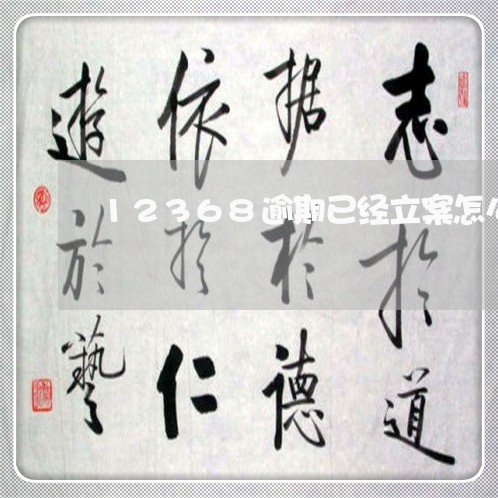 志於道
据於德
依於仁
遊於藝
12368逾期已经立案怎